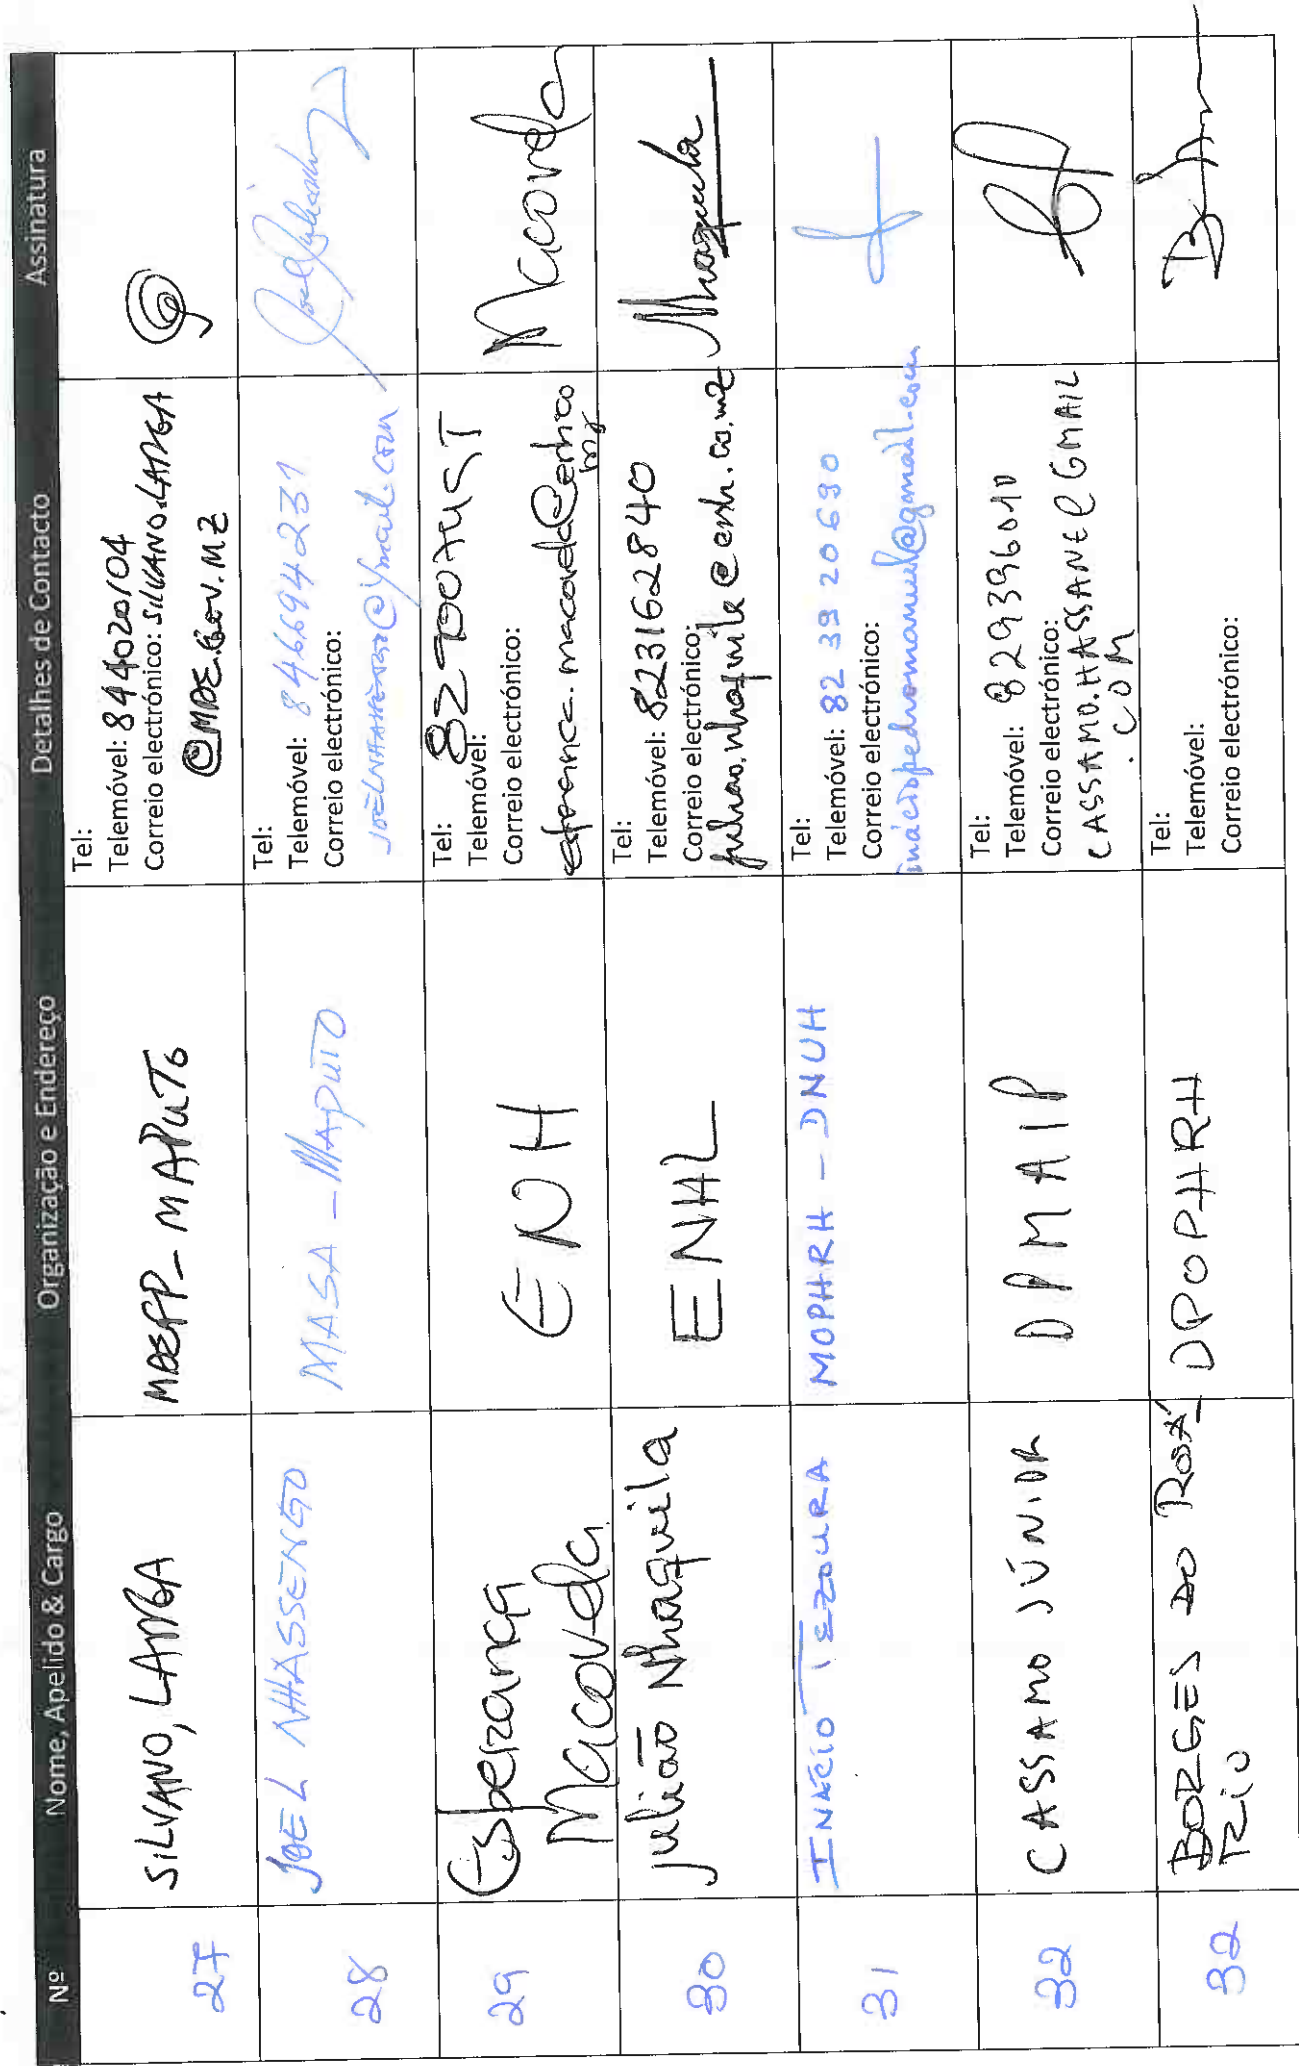 Nº Nome, Apelido & Cargo Organização e Endereço Detalhes de Contacto Assinatura
27 SILVANO, LANGA MAEFP - MAPUTO
Tel:
Telemóvel: 844020104
Correio electrónico: SILVANO.LANGA
@MAE.GOV.MZ
28 JOEL NHASSENGO MASA - MAPUTO
Tel:
Telemóvel: 846694231
Correio electrónico:
JOELNHASSENGO@Ymail.com
29 Esperança
Macovela
ENH
Tel:
Telemóvel:
Correio electrónico:
esperanca.macovela@enh.co
mz
Macovela
30 Julião Nhaquila ENHL
Tel:
Telemóvel: 823162840
Correio electrónico:
juliao.nhaquila@enh.co.mz
Nhaquila
31 INÁCIO TEZOURA MOPHRH - DNUH
Tel:
Telemóvel: 82 39 20 690
Correio electrónico:
ináciopedromanuel@gmail.com
32 CASSAMO JÚNIOR DPMAIP
Tel:
Telemóvel: 829396010
Correio electrónico:
CASSAMO.HASSANE@GMAIL
.COM
32 BORGES DO ROSÁ-
RIO
DPOPHRH
Tel:
Telemóvel:
Correio electrónico: